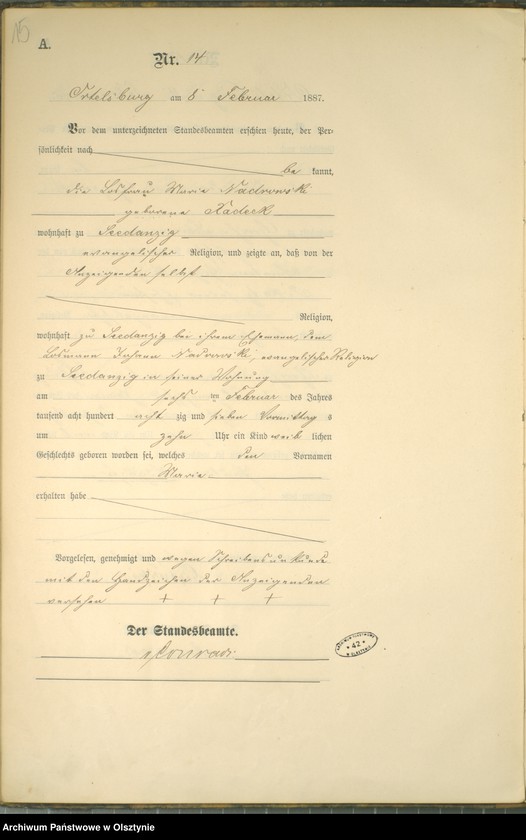 15
A.
Nr. 14
Ortelsburg am 8 Februar 1887.
Vor dem unterzeichneten Standesbeamten erschien heute, der Per-
sönlichkeit nach
be kannt,
die Losfrau Marie Nadrowski
geborene Kadeck
wohnhaft zu Seedanzig
evangelischer Religion, und zeigte an, daß von der
Anzeigenden selbst
Religion,
wohnhaft zu Seedanzig bei ihrem Ehemann, dem
Losmann Johann Nadrowski, evangelischer Religion
zu Seedanzig in seiner Wohnung
am sechs ten Februar des Jahres
tausend acht hundert acht zig und sieben Vormittag s
um zehn Uhr ein Kind weib lichen
Geschlechts geboren worden sei, welches den Vornamen
Marie
erhalten habe
Vorgelesen, genehmigt und wegen Schreibensunkunde
mit den Handzeichen der Anzeigenden
versehen + + +
Der Standesbeamte.
Conrad
42
Archiwum Państwowe w Olsztynie